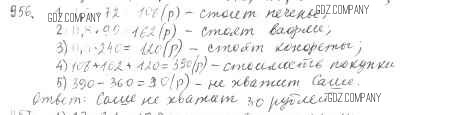 956. 1) 72 108 (р) – стоит печенье;
2) 90 162 (р) – стоят вафли;
3) 240 = 120 (р) – стоят конфеты;
4) 108 + 162 + 120 = 390 (р) – стоимость покупки
5) 390 – 360 = 30 (р) – не хватит Саше.
Ответ: Саше не хватит 30 рублей
GDZ.COMPANY
GDZ.COMPANY
GDZ.COMPANY